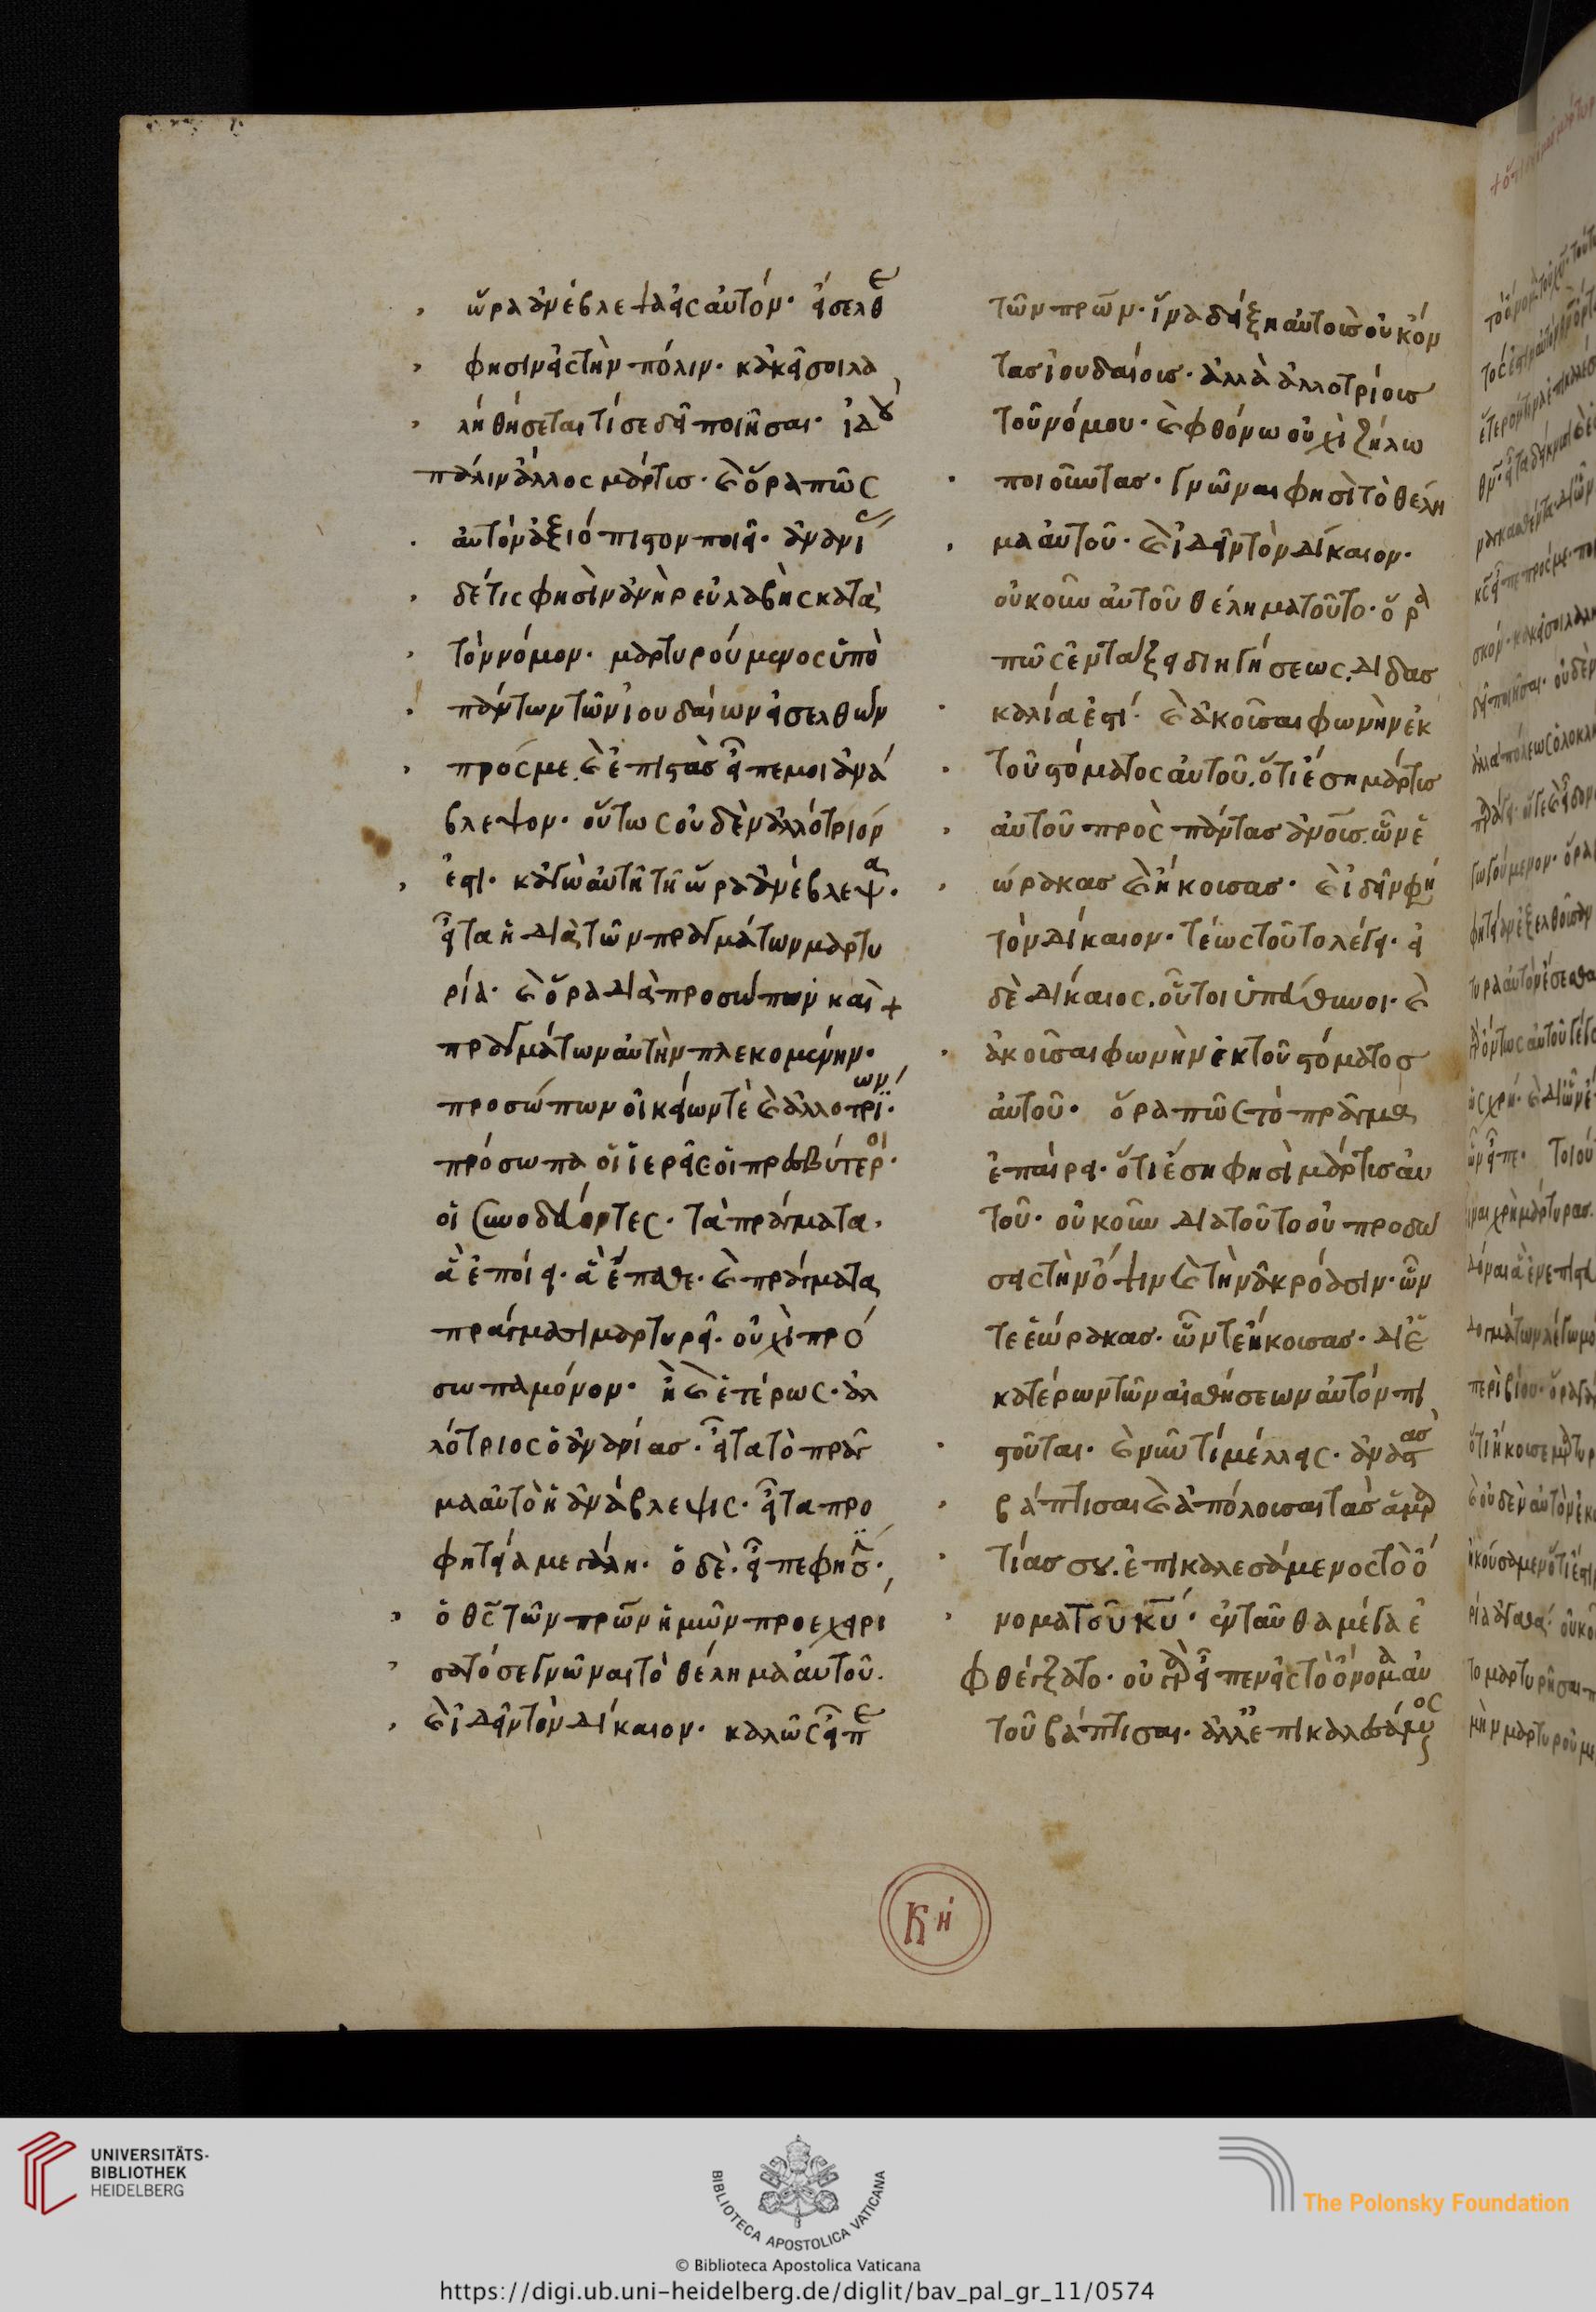 ὥρα ἀνέβλεψα εἰς αὐτόν· εἴσελθε
φησὶν εἰς τὴν πόλιν· κἀκεῖ σοι λα
ληθήσεται τί σε δεῖ ποιῆσαι· ἰδοὺ
πάλιν ἄλλος μάρτις· καὶ ὅρα πῶς
αὐτὸν ἀξιόπιστον ποιεῖ· ἀνανίας
δέ τις φησὶν ἀνὴρ εὐλαβὴς κατὰ
τὸν νόμον· μαρτυρούμενος ὑπὸ
πάντων τῶν ἰουδαίων εἰσελθὼν
πρός με. καὶ ἐπιστὰς εἶπε μοι ἀνά
βλεψον· οὕτως οὐδὲν ἀλλότριόν
ἐστι· κἀγὼ αὐτῆ τῆ ὥρα ἀνέβλεψα·
εἶτα ἡ διὰ τῶν πραγμάτων μαρτυ
ρία· καὶ ὅρα διὰ προσώπων καὶ +
πραγμάτων αὐτὴν πλεκομένην·
προσώπων οἰκείων τὲ καὶ ἀλλοτρίων·
πρόσωπα οἱ ἱερεῖς οἱ πρεσβύτεροι·
οἱ συνοδεύοντες· τὰ πράγματα·
ἃ ἐποίει· ἃ ἔπαθε· καὶ πράγματα
πράγμασι μαρτυρεῖ· οὐχὶ πρό
σωπα μόνον· ἢ καὶ ἑτέρως· ἀλ
λότριος ὁ ἀνανίας· εἶτα τὸ πρᾶγ
μα αὐτὸ ἡ ἀνάβλεψις· εἶτα προ
φητεία μεγάλη· ὁ δὲ. εἶπε φησὶ·
ὁ θς τῶν πρων ἡμῶν προεχειρί
σατό σε γνῶναι τὸ θέλημα αὐτοῦ.
καὶ ἰδεῖν τὸν δίκαιον· καλῶς εἶπε
τῶν πρων· ἵνα δείξη αὐτοὺς οὐκ ὄν
τας ἰουδαίους· ἀλλὰ ἀλλοτρίους
τοῦ νόμου· καὶ φθόνω οὐχὶ ζήλω
ποιοῦντας· γνῶναι φησὶ τὸ θέλη
μα αὐτοῦ· καὶ ἰδεῖν τὸν δίκαιον·
οὐκοῦν αὐτοῦ θέλημα τοῦτο· ὅρα
πῶς ἐν τάξει διηγήσεως. διδασ
καλία ἐστί· καὶ ἀκοῦσαι φωνὴν ἐκ
τοῦ στόματος αὐτοῦ. ὅτι ἔση μάρτις
αὐτοῦ πρὸς πάντας ἀνους. ὧν ἑ
ώρακας καὶ ἤκουσας· καὶ ἰδεῖν φη
τὸν δίκαιον· τέως τοῦτο λέγει· εἰ
δὲ δίκαιος. οὗτοι ὑπεύθυνοι· καὶ
ἀκοῦσαι φωνὴν ἐκ τοῦ στόματος
αὐτοῦ· ὅρα πῶς τὸ πρᾶγμα
ἐπαίρει· ὅτι ἔση φησὶ μάρτις αὐ
τοῦ· οὐκοῦν διὰ τοῦτο οὐ προδώ
σεις τὴν ὄψιν καὶ τὴν ἀκρόασιν· ὧν
τε ἑώρακας· ὧν τε ἤκουσας· δι' ἑ
κατέρων τῶν αἰσθήσεων αὐτὸν πι
στοῦται· καὶ νῦν τί μέλλεις· ἀναστὰς
βάπτισαι καὶ ἀπόλουσαι τὰς ἁμαρ
τίας σου. ἐπικαλεσάμενος τὸ ὄ
νομα τοῦ κυ· ἐνταῦθα μέγα ἐ
φθέγξατο· οὐ γὰρ εἶπεν εἰς τὸ ὄνομα αὐ
τοῦ βάπτισαι. ἀλλ' ἐπικαλεσάμενος
κη
UNIVERSITÄTS-
BIBLIOTHEK
HEIDELBERG
BIBLIOTECA APOSTOLICA VATICANA
The Polonsky Foundation
© Biblioteca Apostolica Vaticana
https://digi.ub.uni-heidelberg.de/diglit/bav_pal_gr_11/0574